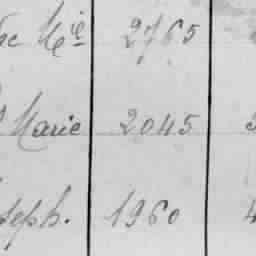 Mie 2765
Marie 2045
seph. 1960 4